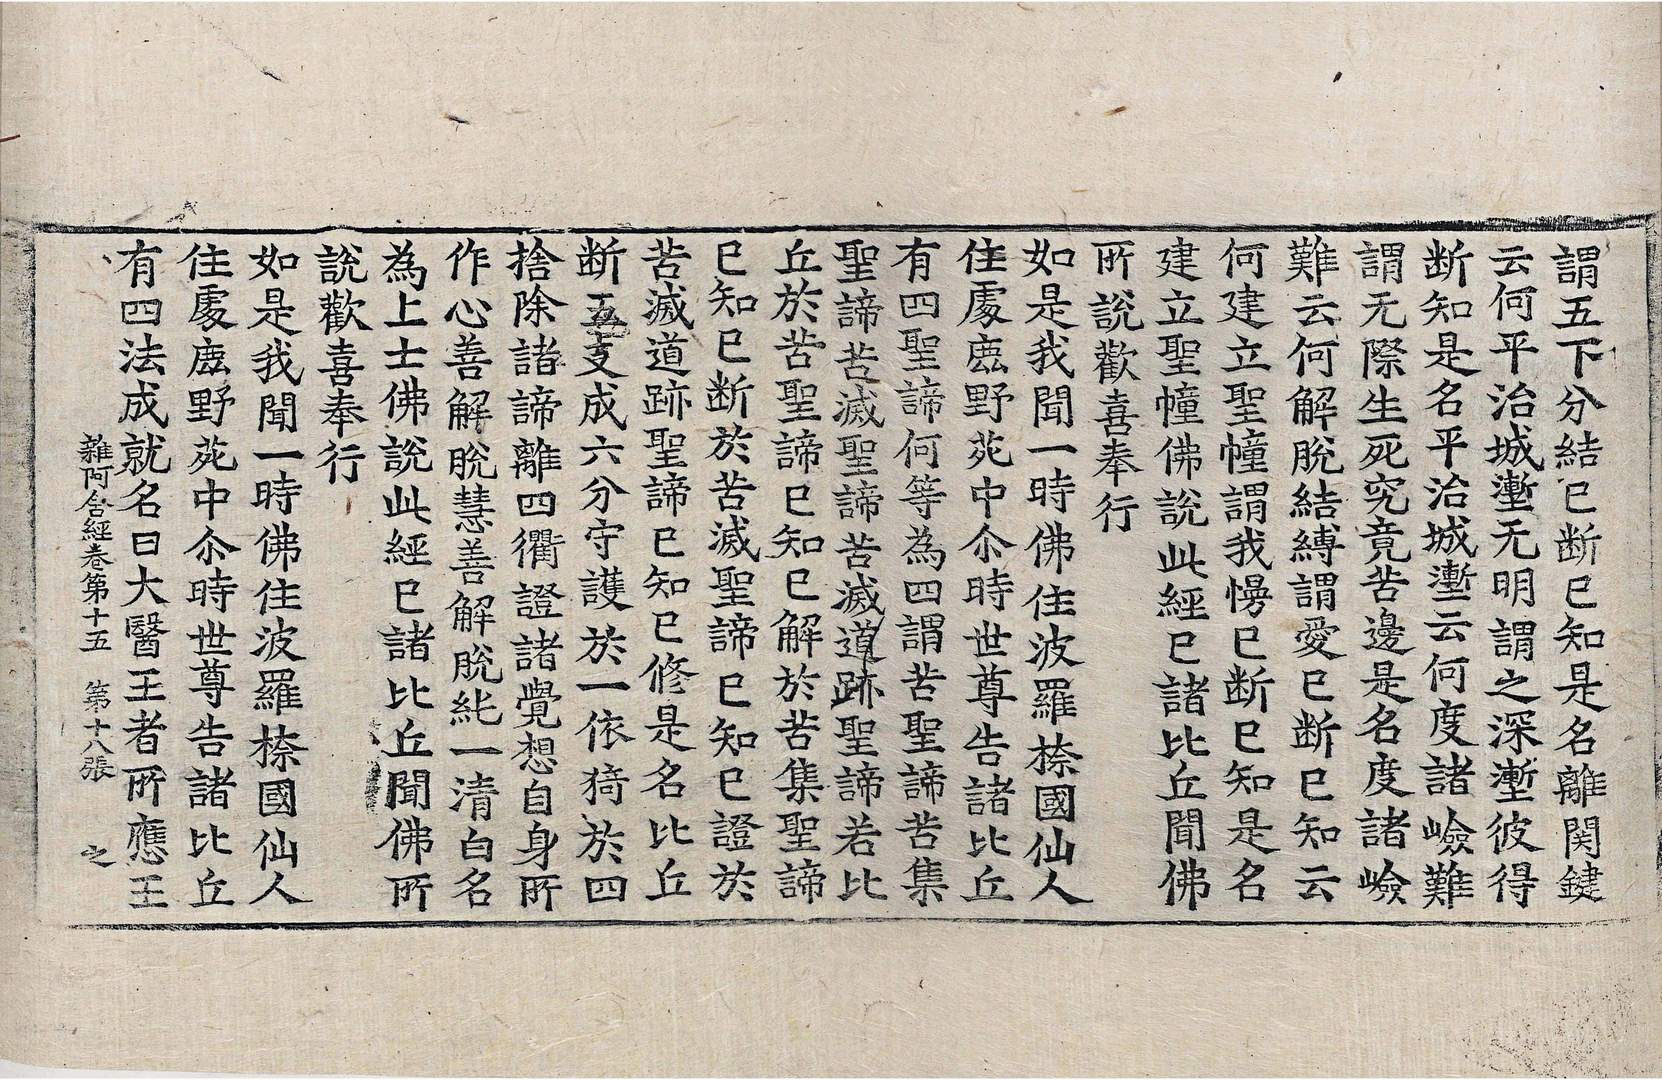 謂五下分結已断已知是名離関鍵
云何平治城壍无明謂之深壍彼得
断知是名平治城壍云何度諸嶮難
謂无際生死究竟苦邊是名度諸嶮
難云何解脫結縛謂愛已断已知云
何建立聖幢謂我慢已断已知是名
建立聖幢佛說此經已諸比丘聞佛
所說歡喜奉行
如是我聞一時佛住波羅㮈國仙人
住處鹿野苑中尒時世尊告諸比丘
有四聖諦何等為四謂苦聖諦苦集
聖諦苦滅聖諦苦滅道跡聖諦若比
丘於苦聖諦已知已解於苦集聖諦
已知已断於苦滅聖諦已知已證於
苦滅道跡聖諦已知已修是名比丘
断五支成六分守護於一依猗於四
捨除諸諦離四衢證諸覺想自身所
作心善解脫慧善解脫純一清白名
為上士佛說此經已諸比丘聞佛所
說歡喜奉行
如是我聞一時佛住波羅㮈國仙人
住處鹿野苑中尒時世尊告諸比丘
有四法成就名曰大醫王者所應王
雜阿含經卷第十五 第十八張 之